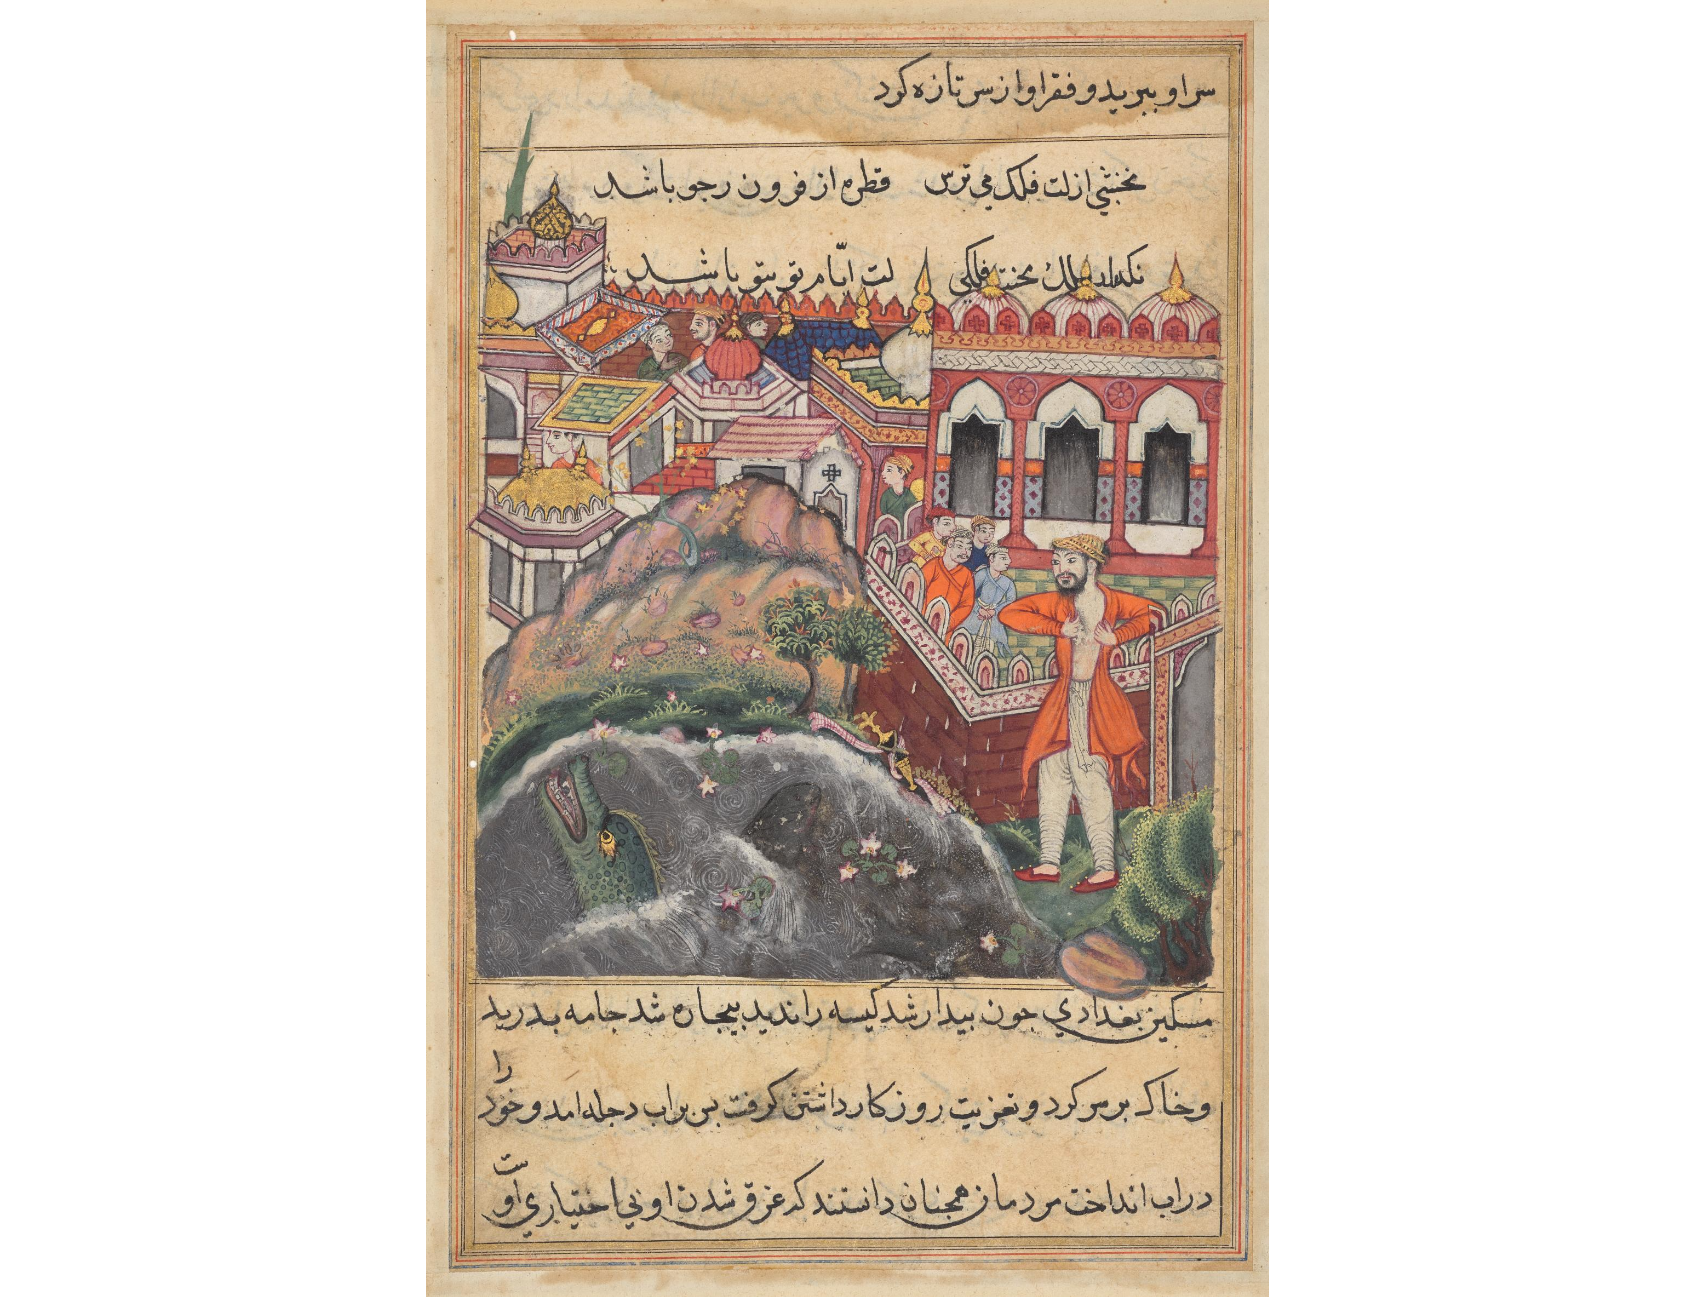 سر او ببرید و فقر او از سر تازه کرد
نخشبی از لت فلک می ترس قطره از فرون رجو باشد
نکهدارد فلک محنت فلکی لت ایام تو بتو باشد
مسکین بغدادی جون بیدار شد کیسه را ندید بیجاره شد جامه بدرید
و خاک بر سر کرد و تعزیت روزکار داشتن کرفت بس بر اب دجله امد و خود را
در اب انداخت مردمان همجنان دانستند که غرق شدن او بی اختیاری اوست